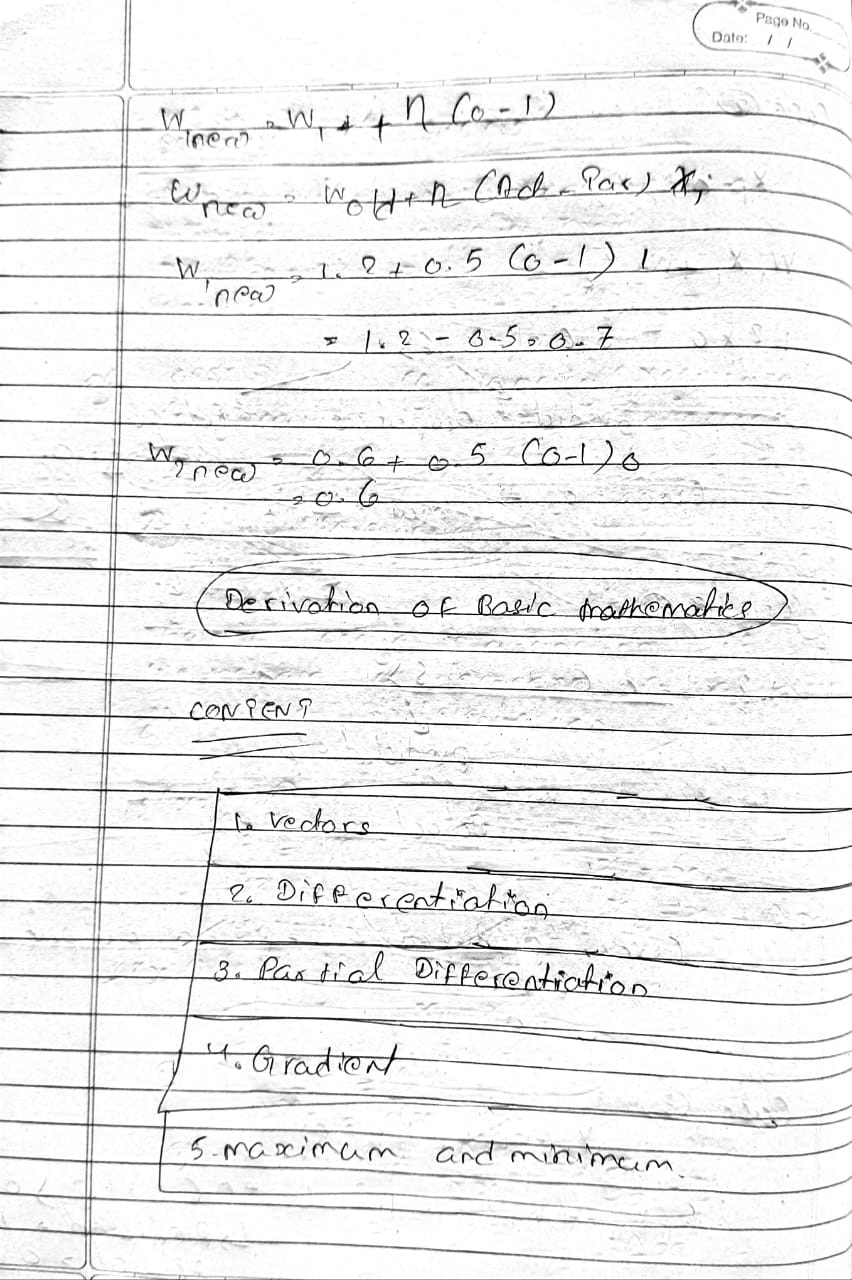 Page No.
Date: / /
W1new = W1 + + η (0-1)
Wnew = Wold + η (Act - Par) xi
W1new = 1.2 + 0.5 (0-1) 1
= 1.2 - 0.5 = 0.7
W2new = 0.6 + 0.5 (0-1) 0
= 0.6
Derivation of Basic mathematics
CONTENT
1. vectors
2. Differentiation
3. Partial Differentiation
4. Gradient
5. maximum and minimum.